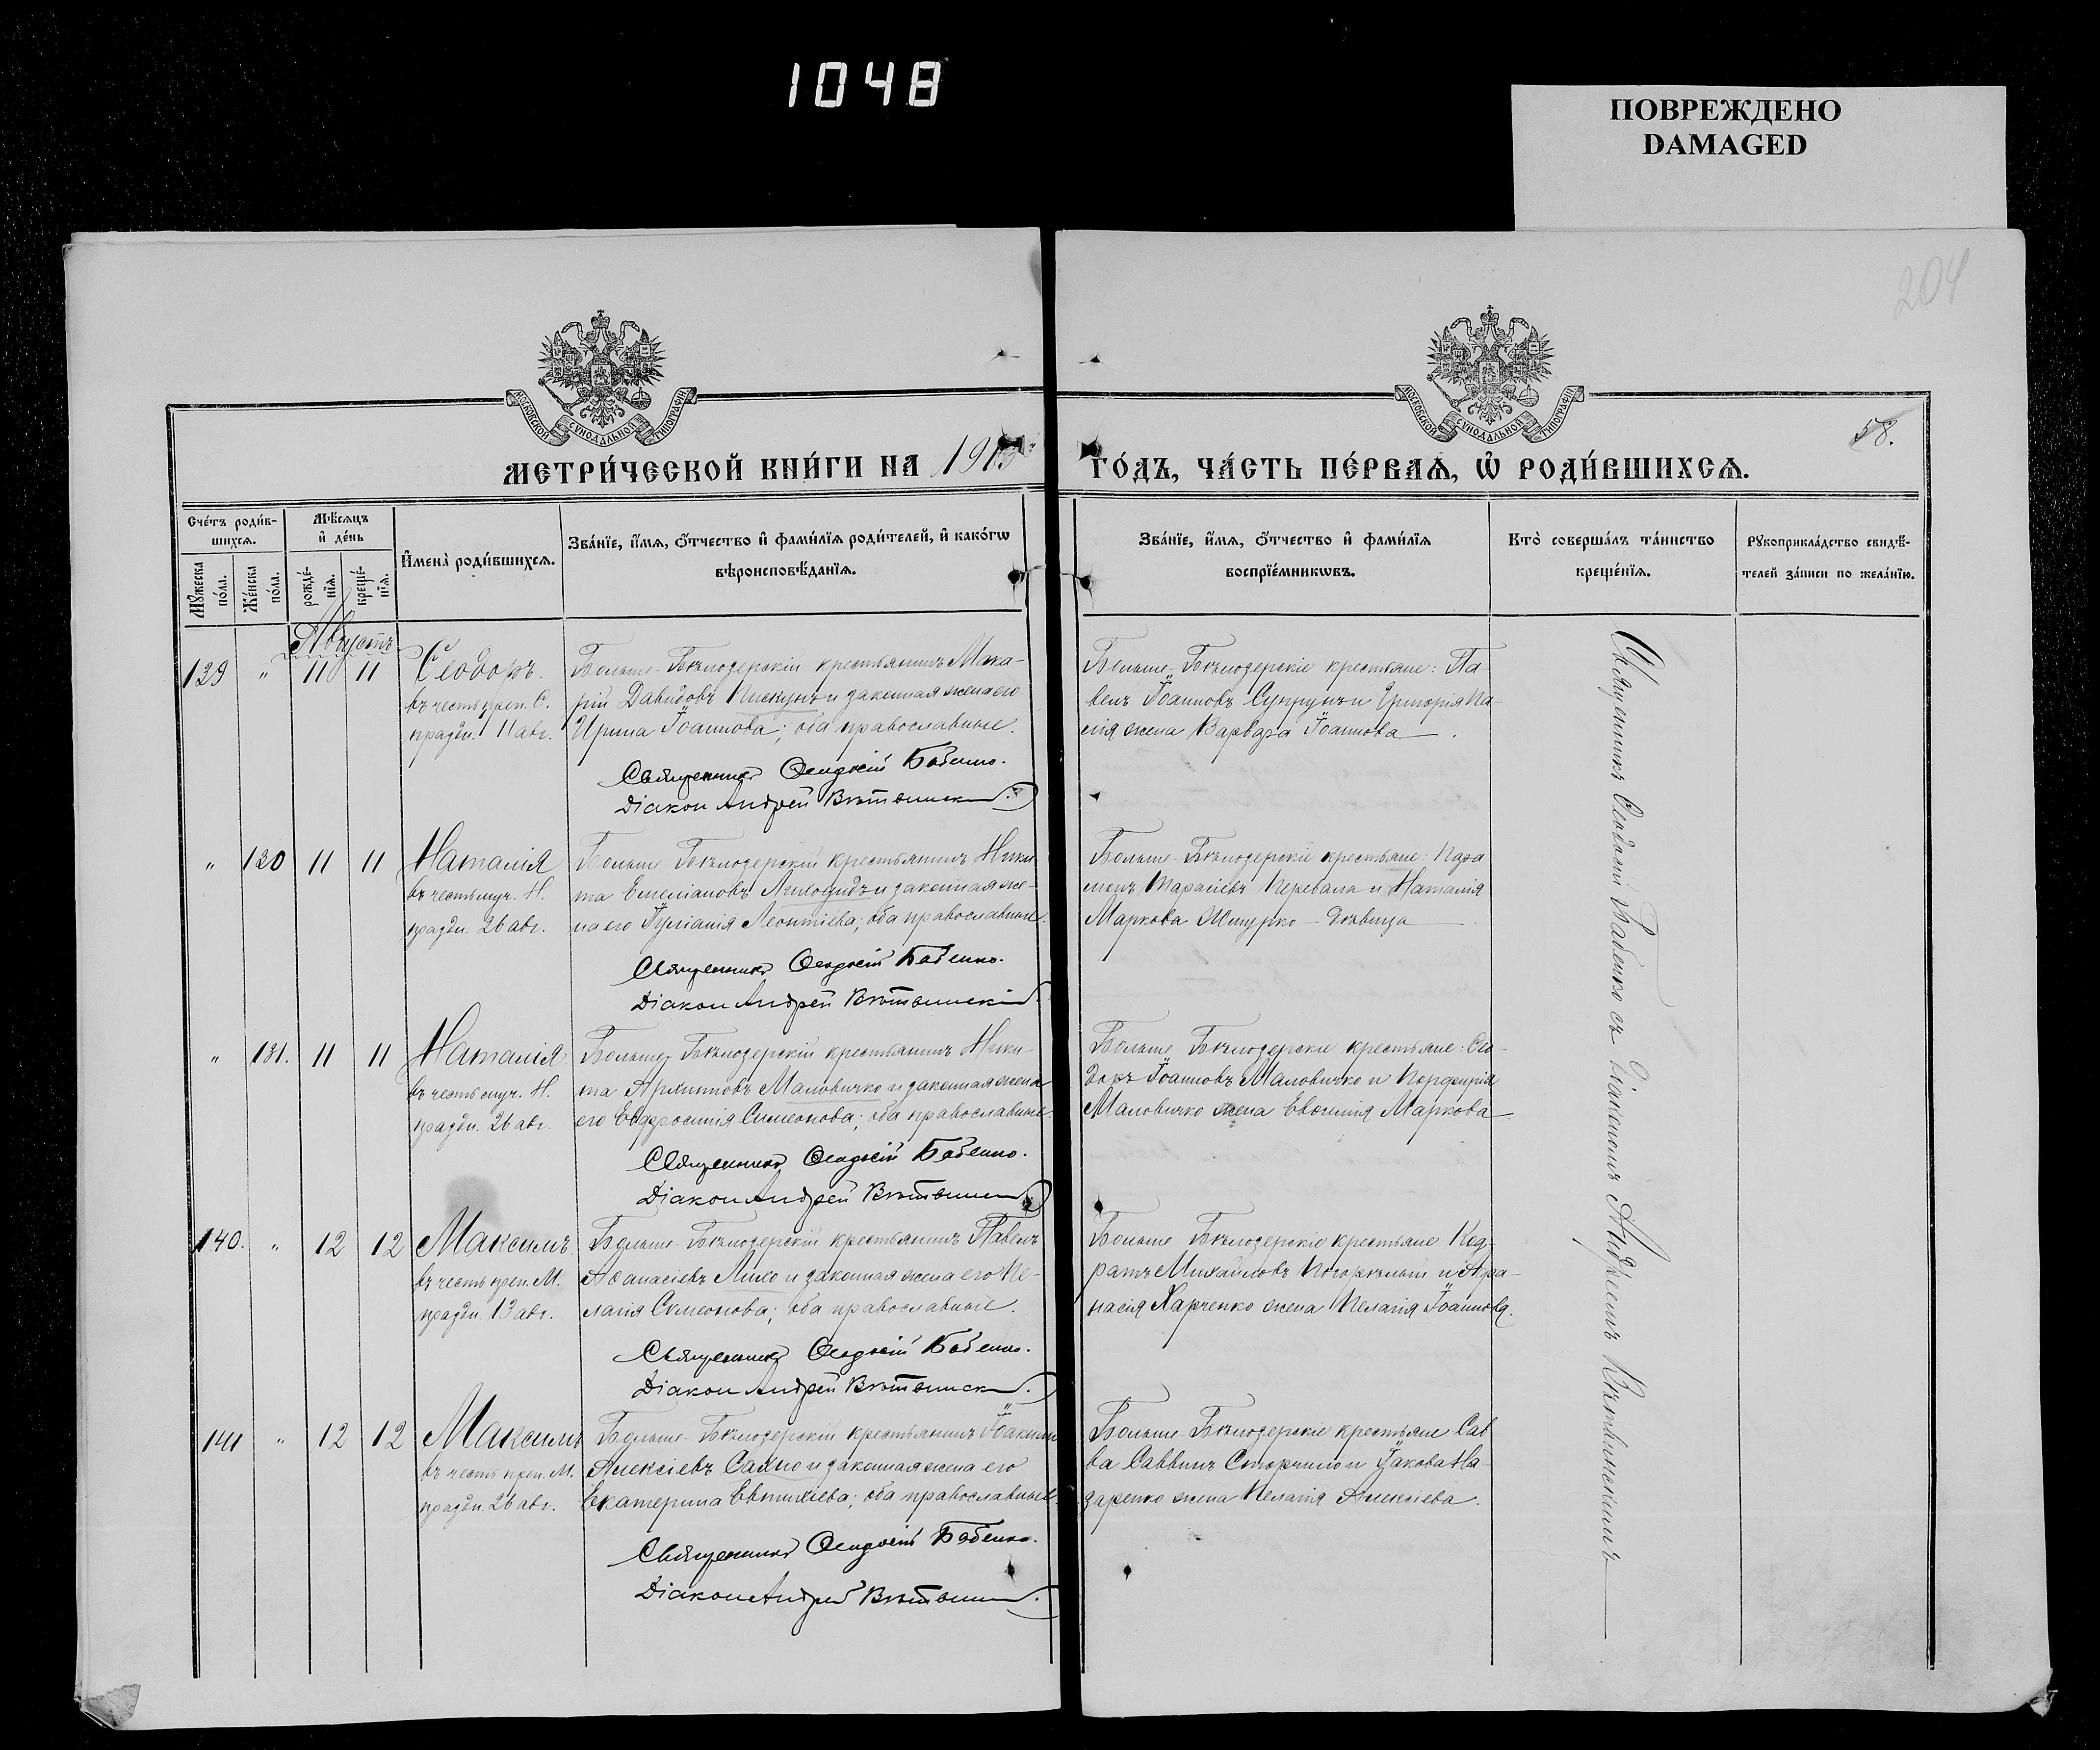 1048
ПОВРЕЖДЕНО
DAMAGED
204
МОСКОВСКОЙ СѴНОДАЛЬНОЙ ТИПОГРАФІИ
МОСКОВСКОЙ СѴНОДАЛЬНОЙ ТИПОГРАФІИ
58.
МЕТРИ́ЧЕСКОЙ КНИ́ГИ НА 1913
ГО́ДЪ, ЧА́СТЬ ПЕ́РВАѦ, Ѡ҆ РОДИ́ВШИХСѦ.
Сче́тъ роди́в-
шихсѧ.
Мѣ́сѧцъ
и҆ де́нь
Мꙋ́жеска
по́ла.
Же́нска
по́ла.
рожде́-
нїѧ.
креще́-
нїѧ.
И҆мена̀ роди́вшихсѧ.
Зва́нїе, и҆́мѧ, ѻ҆́тчество и҆ фами́лїѧ роди́телей, и҆ како́гѡ
вѣроисповѣ́данїѧ.
Зва́нїе, и҆́мѧ, ѻ҆́тчество и҆ фами́лїѧ
воспрїе́мникѡвъ.
Кто̀ соверша́лъ та́инство
креще́нїѧ.
Рꙋкоприкла́дство свидѣ́-
телей за́писи по жела́нїю.
Августъ
139 " 11 11 Ѳеодоръ.
въ честь преп. Ѳ.
праздн. 11 авг.
Больше-Бѣлозерскій крестьянинъ Мака-
рій Давидовъ Пискунъ и законная жена его
Ирина Іоаннова; оба православные.
Священникъ Ѳеодосій Бабенко.
Діаконъ Андрей Вѣтвински
Больше-Бѣлозерскіе крестьяне: Па-
велъ Іоанновъ Супрунъ и Григорія Па-
жена Варвара Іоаннова
" 130 11 11 Наталія
въ честь муч. Н.
праздн. 26 авг.
Больше-Бѣлозерскій крестьянинъ Ники
та Емеліановъ и законная же-
на его Іуліанія Леонтіева; оба православные.
Священникъ Ѳеодосій Бабенко.
Діаконъ Андрей Вѣтвинскій
Больше-Бѣлозерскіе крестьяне: Пара
менъ Тарасіевъ Перевала и Наталія
Маркова – дѣвица
" 131. 11 11 Наталія
въ честь муч. Н.
праздн. 26 авг.
Больше-Бѣлозерскій крестьянинъ Ники-
та Архипповъ Маловичко и законная жена
его Евфросинія Симеонова; оба православные.
Священникъ Ѳеодосій Бабенко.
Діаконъ Андрей Вѣтвински
Больше Бѣлозерскіе крестьяне: Ѳео-
доръ Іоанновъ Маловичко и Порфирія
Маловичко жена Евфимія Маркова
140. " 12 12 Максимъ.
въ честь преп. М.
праздн. 13 авг.
Больше-Бѣлозерскій крестьянинъ Павелъ
Аѳанасіевъ Лихо и законная жена его Пе-
лагія Симеонова; оба православные.
Священникъ Ѳеодосій Бабенко.
Діаконъ Андрей Вѣтвински
Больше Бѣлозерскіе крестьяне Код-
ратъ Михайловъ Погорѣлый и Аѳа-
насія Харченко жена Пелагія Іоаннова.
141 " 12 12 Максимъ
въ честь преп. М.
праздн. 26 авг.
Больше-Бѣлозерскій крестьянинъ Іоакимъ
Алексіевъ Сахно и законная жена его
Екатерина Евтихіева; оба православные.
Священникъ Ѳеодосій Бабенко.
Діаконъ Андрей Вѣтвински
Больше-Бѣлозерскіе крестьяне Сав
ва Саввинъ Сторчило и Іакова На-
заренко жена Пелагія Алексіева.
Священникъ Ѳеодосій Бабенко съ Діакономъ Андреемъ Вѣтвинскимъ